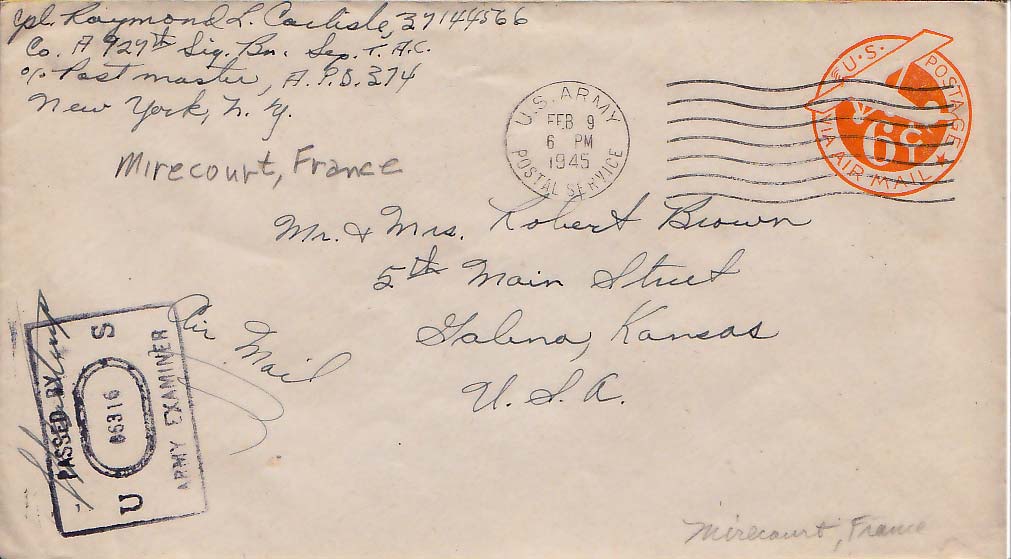 Cpl. Raymond L. Carlisle, 37144566
Co. A 927th Sig. Bn. Sep. T.A.C.
% Postmaster, A.P.O. 374
New York, N.Y.
Mirecourt, France
U.S. ARMY
FEB 9
6 PM
1945
POSTAL SERVICE
U.S. POSTAGE
6c
VIA AIR MAIL
Mr. & Mrs. Robert Brown
5th Main Street
Galena, Kansas
U.S.A.
Air Mail
PASSED BY
U S
06316
ARMY EXAMINER
Mirecourt, France